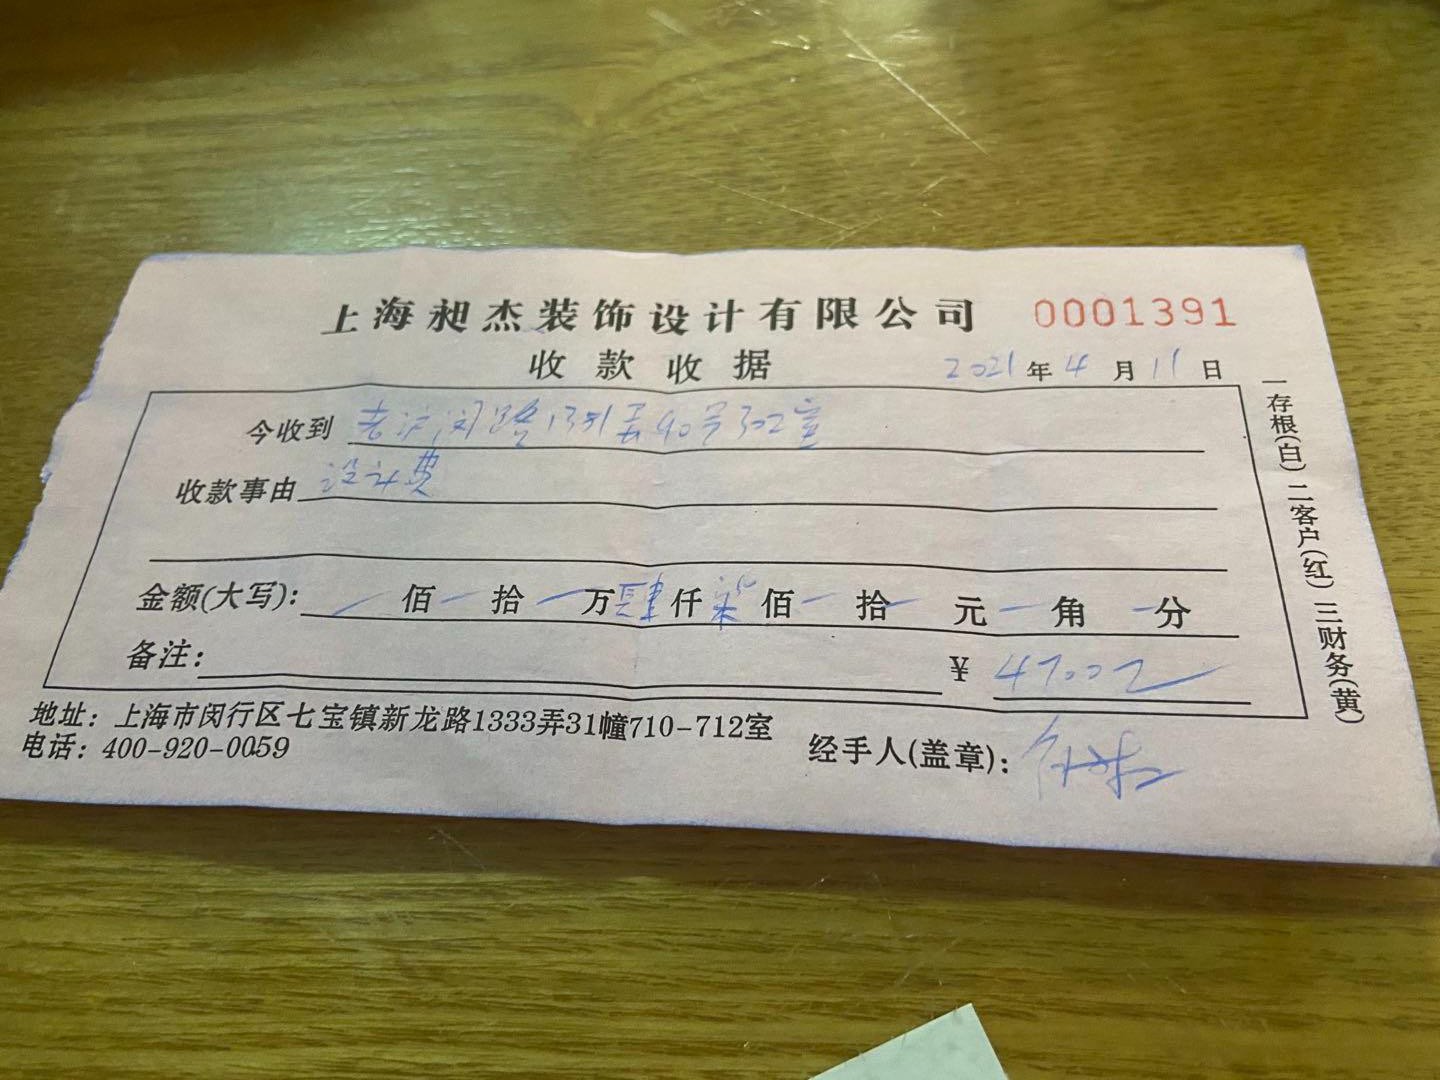 上海昶杰装饰设计有限公司 0001391
收款收据 2021年4月11日
今收到 老沪闵路1351弄90号302室
收款事由 设计费
金额(大写): 佰 拾 万肆仟柒佰 拾 元 角 分
备注: ¥ 4700元
地址: 上海市闵行区七宝镇新龙路1333弄31幢710-712室
电话: 400-920-0059
经手人(盖章):
一存根(白)二客户(红)三财务(黄)